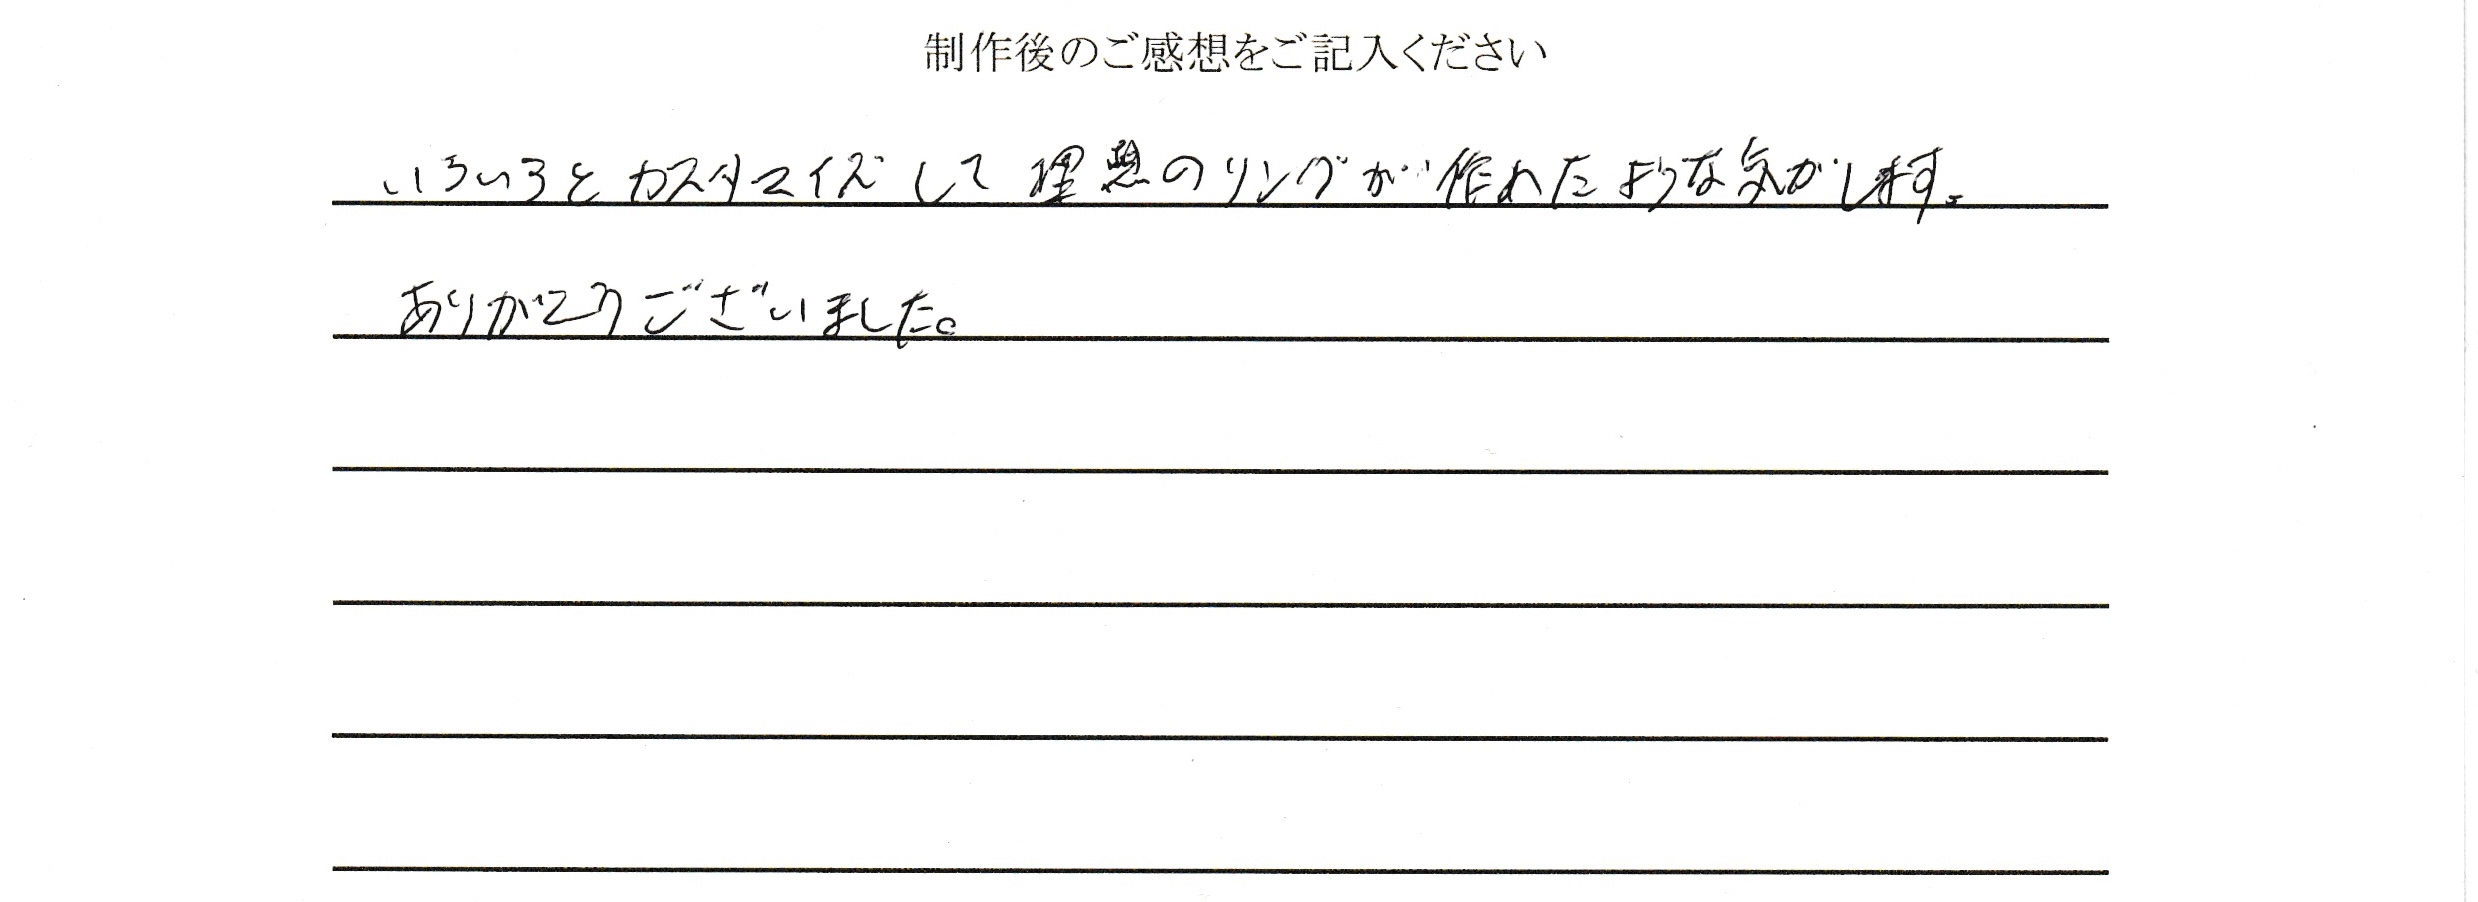 制作後のご感想をご記入ください
いろいろとカスタマイズして理想のリングが作れたような気がします。
ありがとうございました。